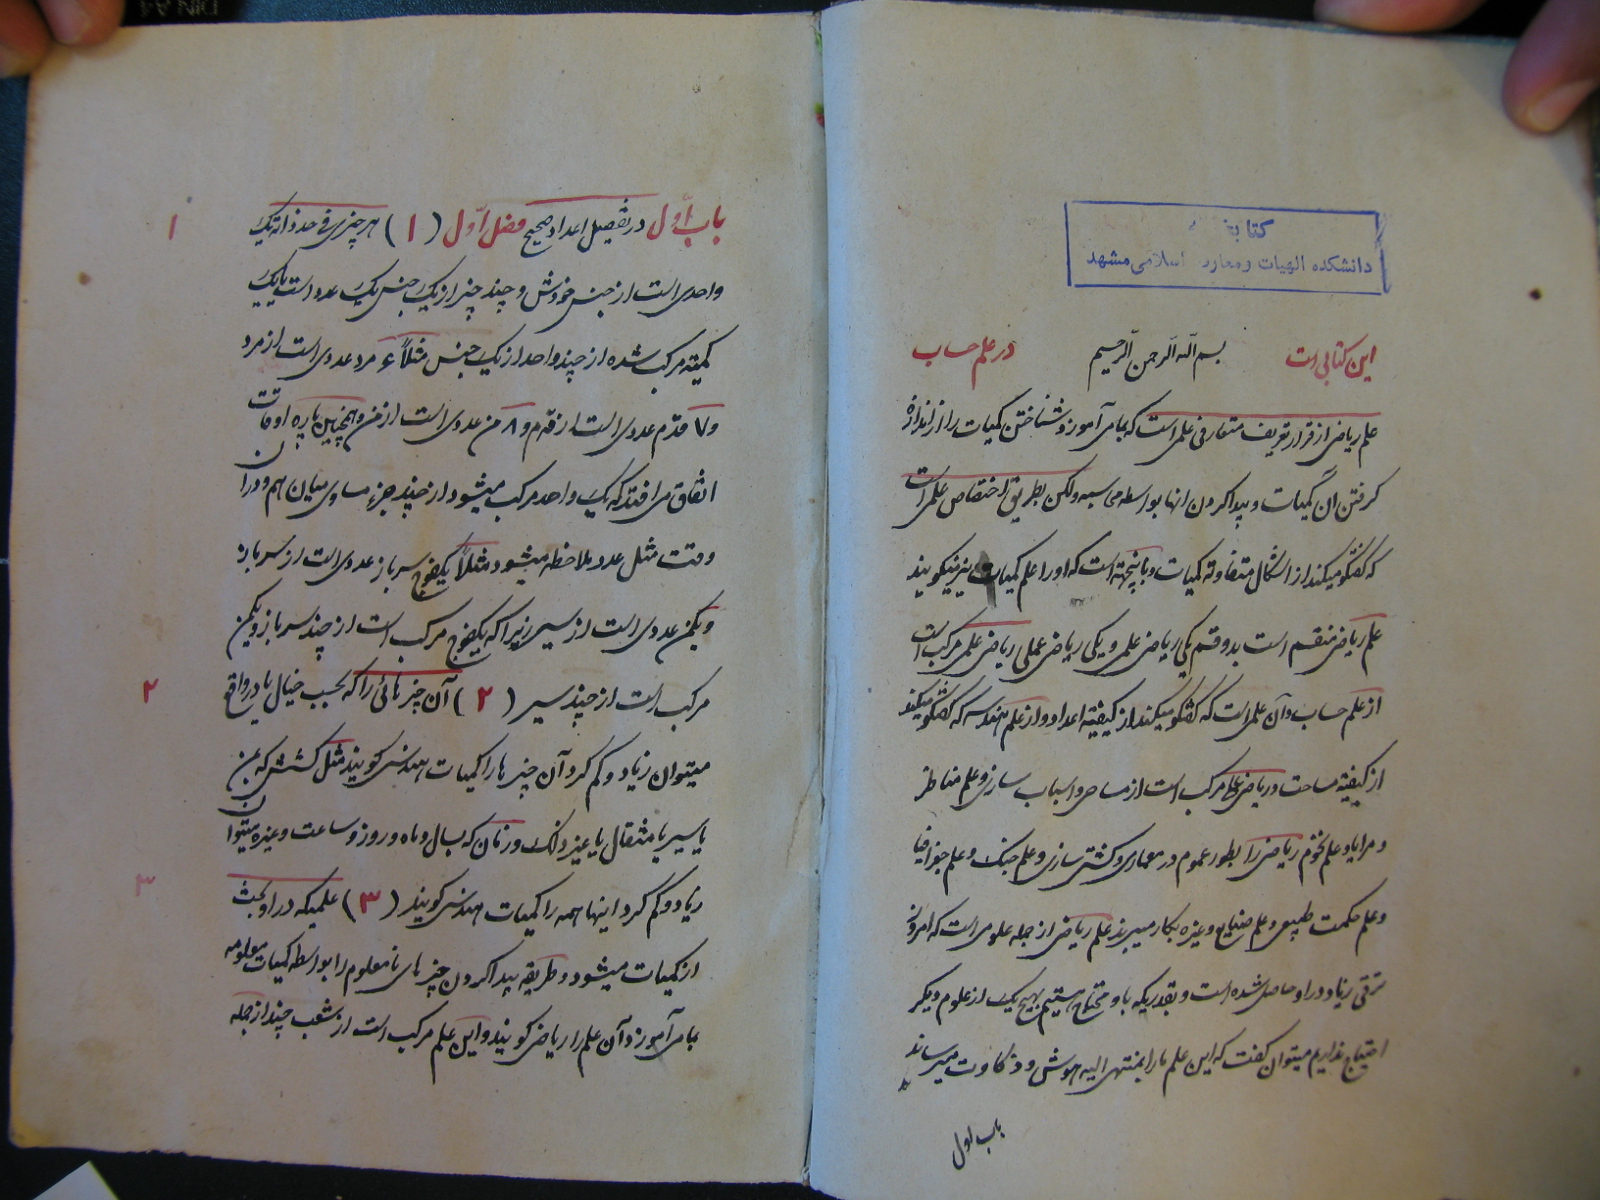 کتابخ
دانشکده الهیات و معارف اسلامی مشهد
این کتابی است بسم الله الرحمن الرحیم در علم حساب
علم ریاضی از قرار تعریف متعارفی علمی است که بما می آموزد شناختن کمیات را از اندازه
کرفتن آن کمیات و پیدا کردن انها بواسطه محاسبه ولکن بطریق اختصاص علمی است
که کفتکو میکند از اشکال متفاوته کمیات و باینجهة است که او را علم کمیات نیز میکویند
علم ریاضی منقسم است بدو قسم یکی ریاضی علمی و یکی ریاضی عملی ریاضی علمی مرکب است
از علم حساب و آن علمی است که کفتکو میکند از کیفیته اعداد و از علم هندسه که کفتکو میکند
از کیفیته مساحت و ریاضی عملی مرکب است از مساحی و اسباب سازی و علم مناظر
و مرایا و علم نجوم ریاضی را بطور عموم در معماری و کشتی سازی و علم جنک و علم جغرافیا
و علم حکمت طبیعی و علم صنایع و غیره بکار میبرند علم ریاضی از جمله علومی است که امروزه
ترقی زیاد در او حاصل شده است و بقدریکه باو محتاج هستیم بهیچ یک از علوم دیکر
احتیاج نداریم میتوان کفت که این علم ما را بمنتهی الیه هوش و ذکاوت میرساند
باب اول
باب اول در تفصیل اعداد صحیح فصل اول (۱) هر چیزی فی حد ذاته یک
۱
واحدی است از جنس خودش و چند چیز از یک جنس یک عدد است یا یک
کمیته مرکب شده از چند واحد از یک جنس مثلاً ۶ مرد عددی است از مرد
و ۷ قدم عددی است از قدم و ۸ من عددی است از من و همچنین پاره اوقات
اتفاق می افتد که یک واحد مرکب میشود از چند جزء مساوی میان هم و در آن
وقت مثل عدد ملاحظه میشود مثلاً یکفوج سرباز عددی است از سرباز
و یکمن عددی است از سیر زیرا که یکفوج مرکب است از چند سرباز و یکمن
مرکب است از چند سیر (۲) آن چیزهائی را که بحسب خیال یا در واقع
۲
میتوان زیاد و کم کرد آن چیزها را کمیات هندسی کویند مثل کشش که بمن
یا سیر یا مثقال یا غیر ذلک و زمان که بسال و ماه و روز و ساعت و غیره میتوان
زیاد و کم کرد اینها همه را کمیات هندسی کویند (۳) علمیکه در او بحث
۳
از کمیات میشود و طریقه پیدا کردن چیزهای نامعلوم را بواسطه کمیات معلومه
بما می آموزد آن علم را ریاضی کویند و این علم مرکب است از شعب چند از جمله